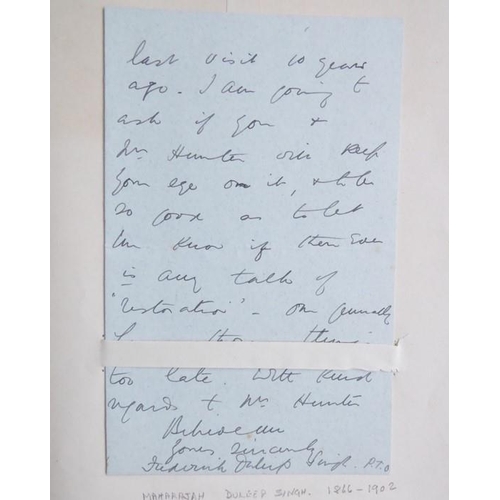 last visit 10 years
ago. I am going to
ask if you &
Mr Hunter will keep
your eye on it, & to be
so good as to let
me know if there ever
is any talk of
'restoration' – one generally
too late. With kind
regards to Mr Hunter
Believe me
Yours sincerely
Frederick Duleep Singh P.T.O
MAHARAJAH DULEEP SINGH. 1866-1902